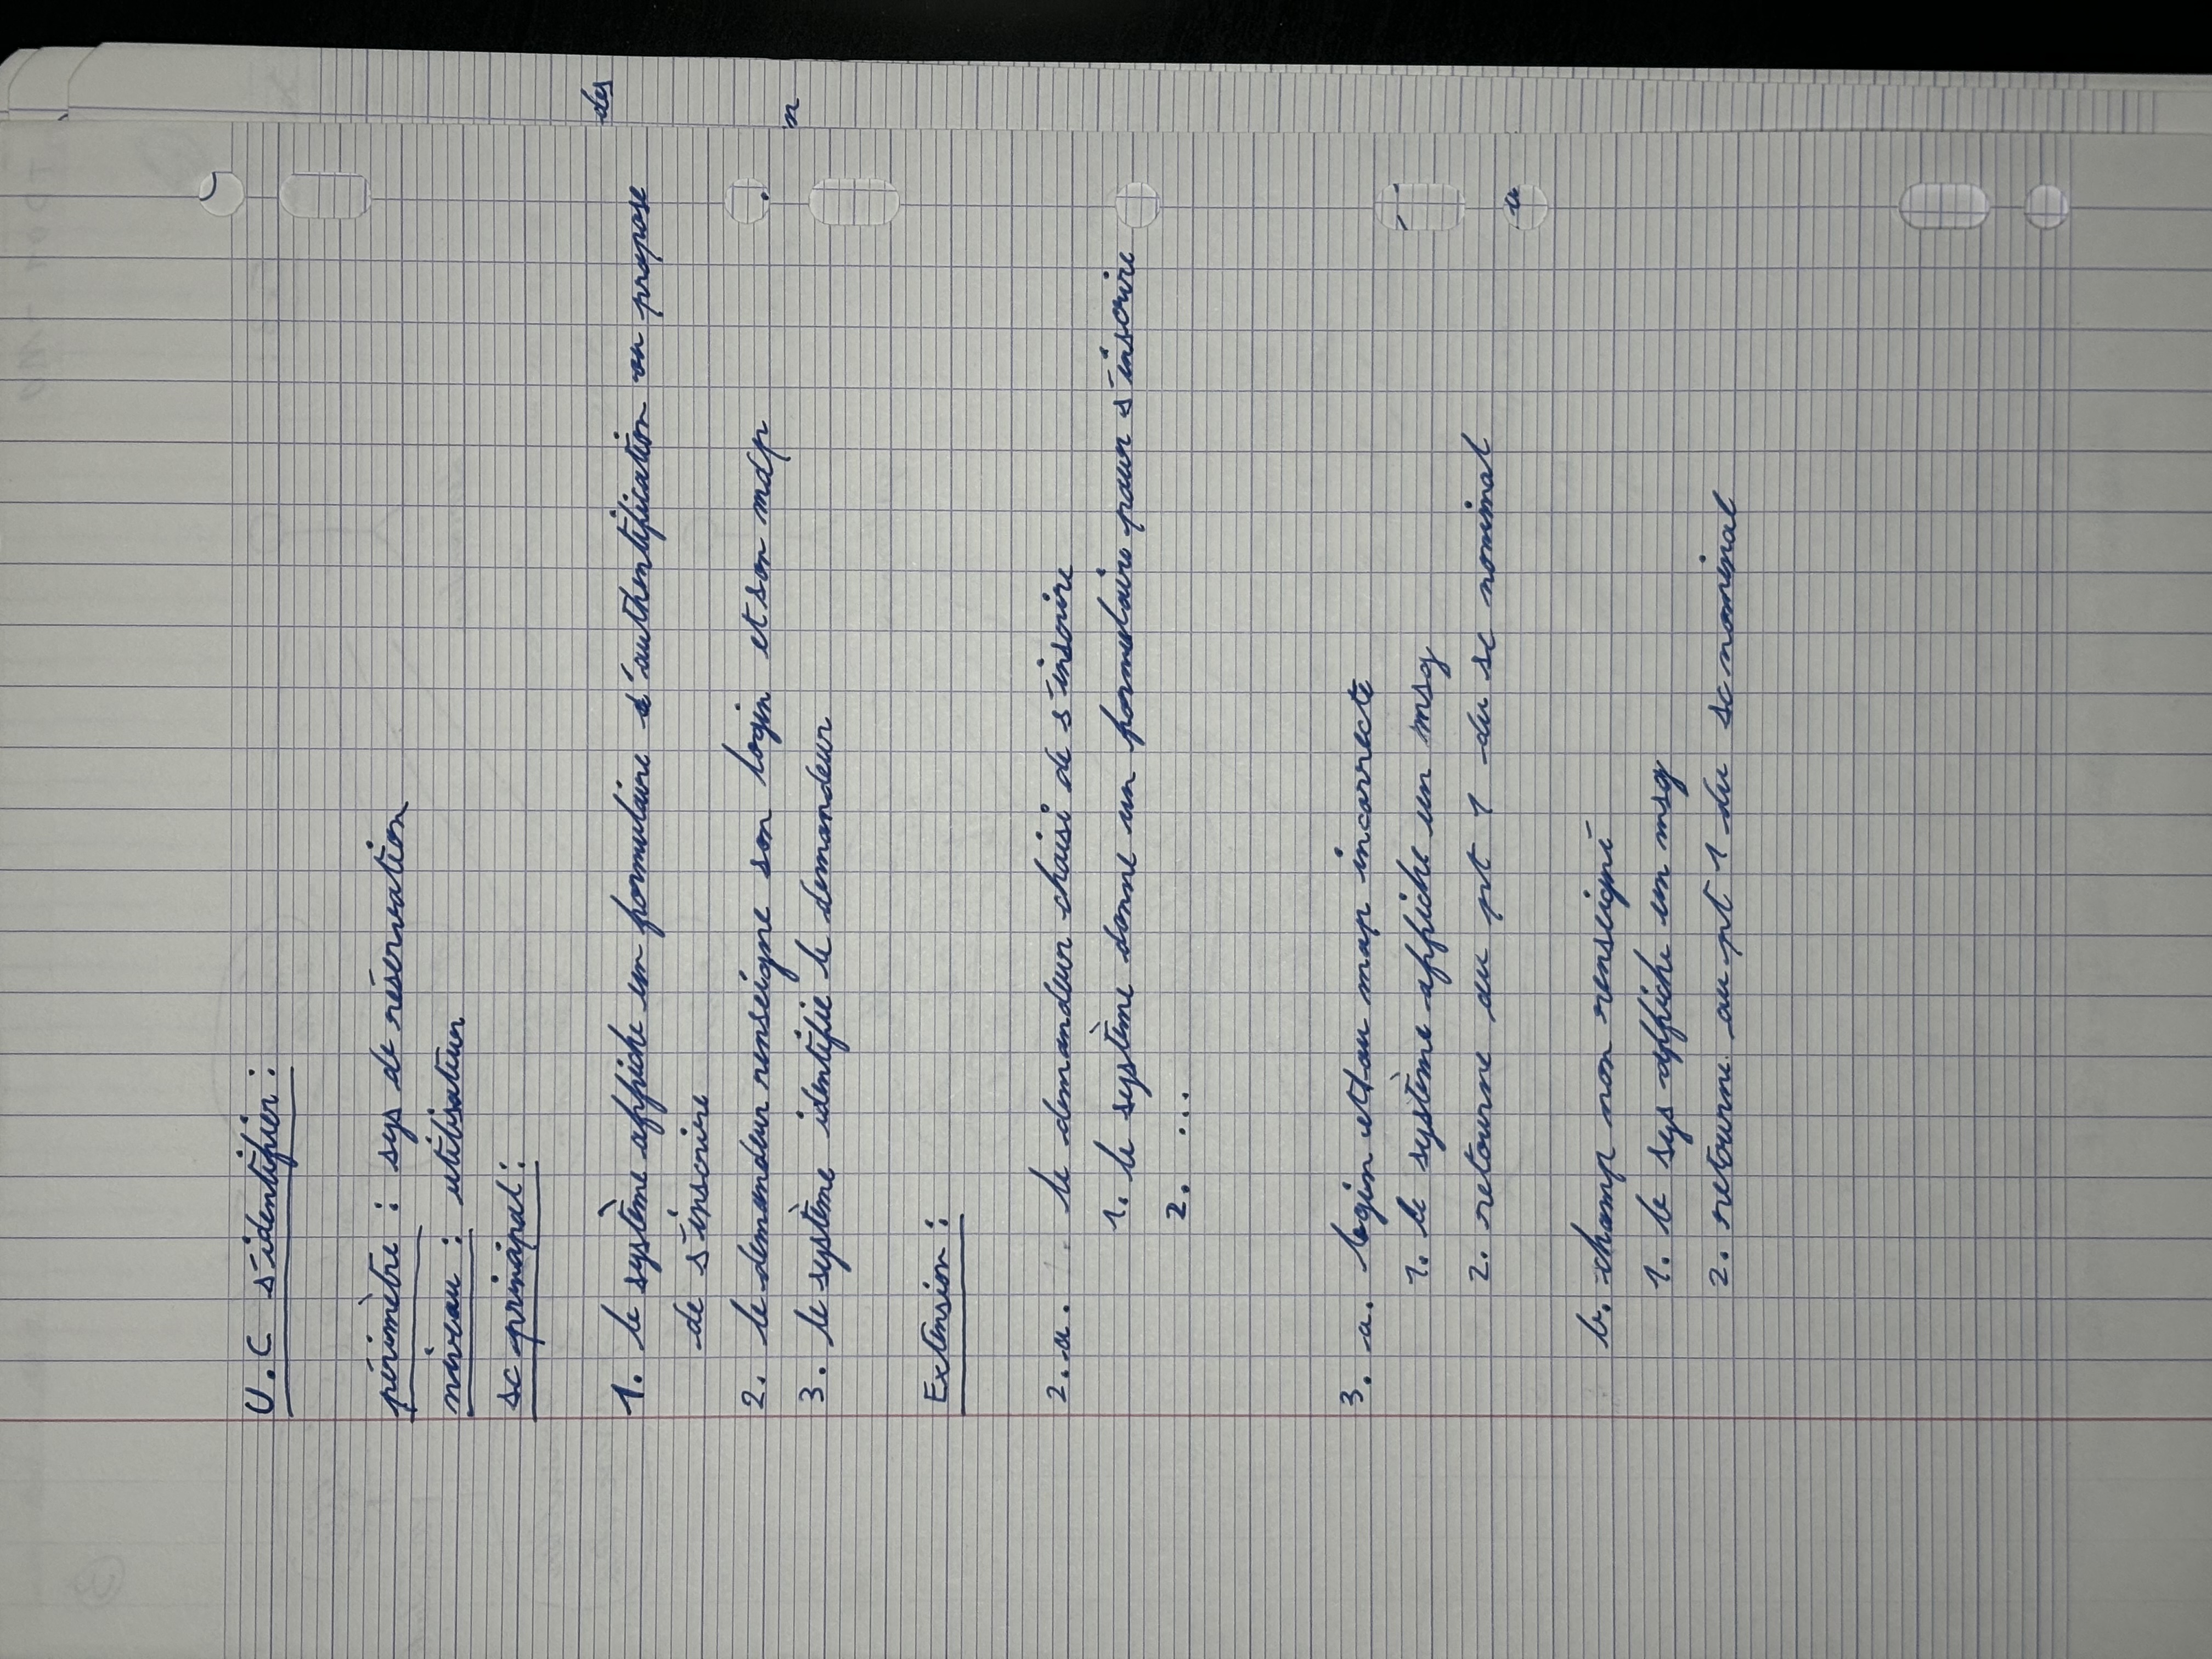 U.C s'identifier :
périmètre : sys de réservation
niveau : utilisateur
sc principal :
1. le système affiche un formulaire d'authentification ou propose
de s'inscrire
2. le demandeur renseigne son login et son mdp
3. le système identifie le demandeur
Extension :
2. a. le demandeur choisi de s'inscrire
1. le système donne un formulaire pour s'inscrire
2. ...
3. a. login et/ou mdp incorrecte
1. le système affiche un msg
2. retourne au pt 1 du sc nominal
b. champ non renseigné
1. le sys affiche un msg
2. retourne au pt 1 du sc nominal
des
n
a